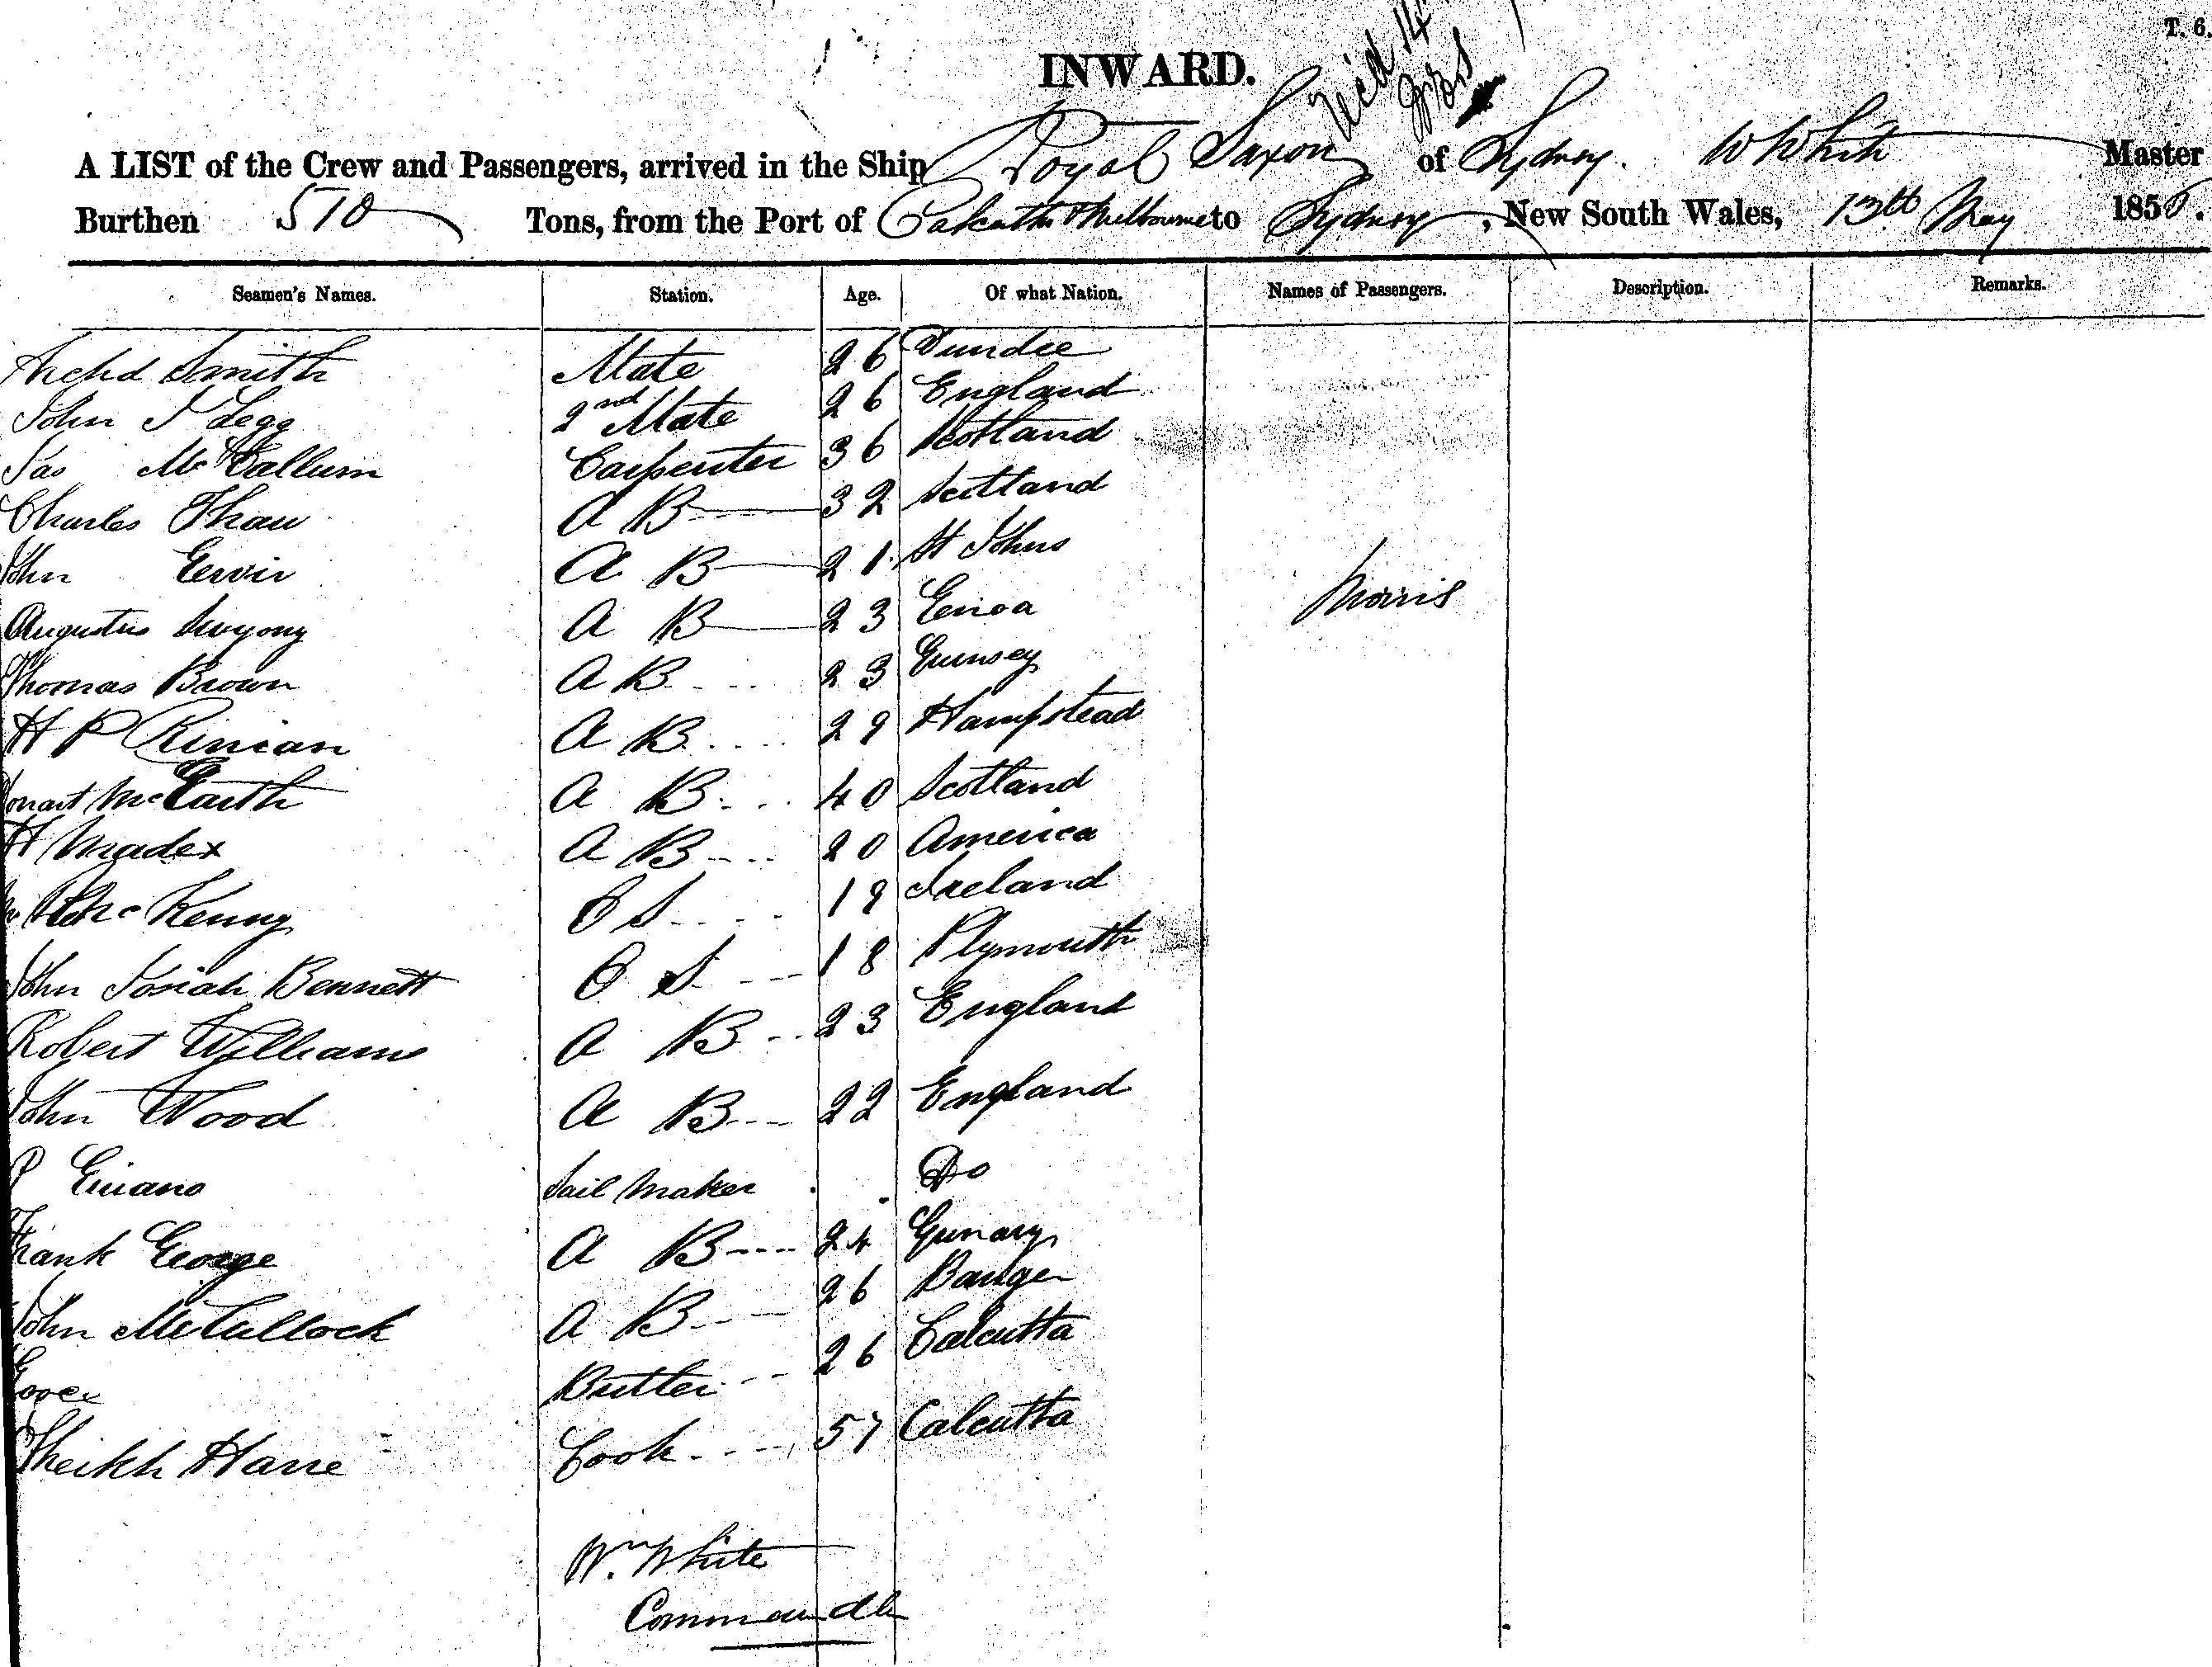 T. 6.
INWARD.
A LIST of the Crew and Passengers, arrived in the Ship Royal Saxon of Sydney. W White Master
Burthen 510 Tons, from the Port of Calcutta & Melbourne to Sydney, New South Wales, 13th May 185
Seamen's Names. Station. Age. Of what Nation. Names of Passengers. Description. Remarks.
Archd Smith Mate 26 Dundee
John J Legg 2nd Mate 26 England
Jas McCallum Carpenter 36 Scotland
Charles Thaw A B 32 Scotland
John A B 21 St Johns
Augustus A B 23 Genoa Morris
Thomas Brown A B 23 Guinsey
H P A B 29 Hampstead
A B 40 Scotland
H Madex A B 20 America
McKenny O S 19 Ireland
John Josiah Bennett O S 18 Plymouth
Robert Williams A B 23 England
John Wood A B 22 England
P Sail Maker Do
Frank George A B 24
John McCullock A B 26
Butler 26 Calcutta
Sheikh Cook 57 Calcutta
Wm White
Commander